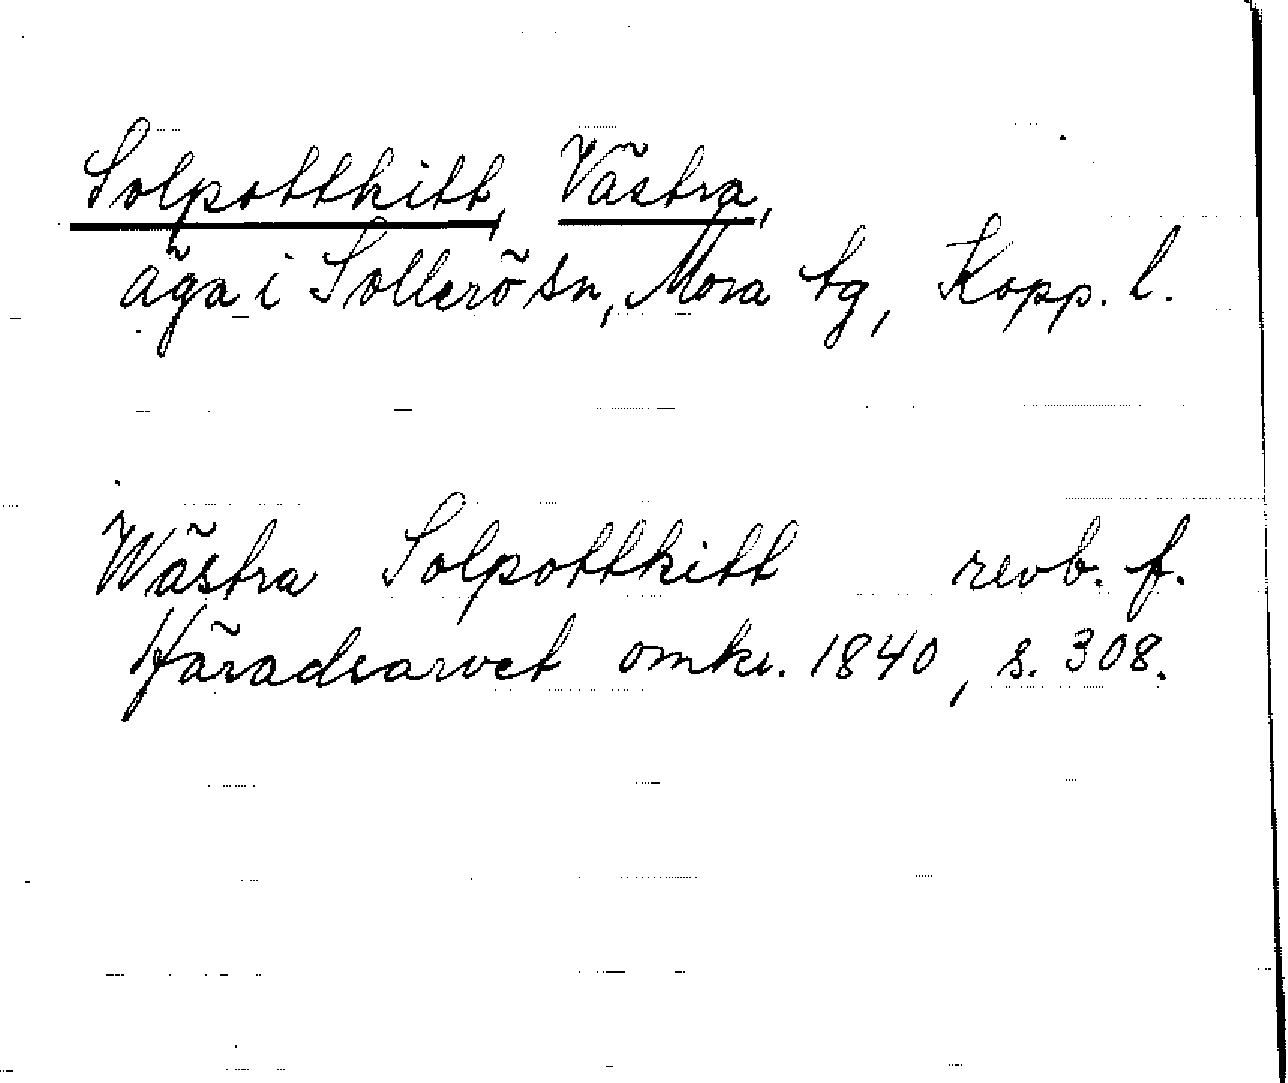 Solpotthitt, Västra,
äga i Sollerö sn, Mora tg, Kopp. l.
Wästra Solpotthitt revb. f.
Häradsarvet omkr. 1840, s. 308.